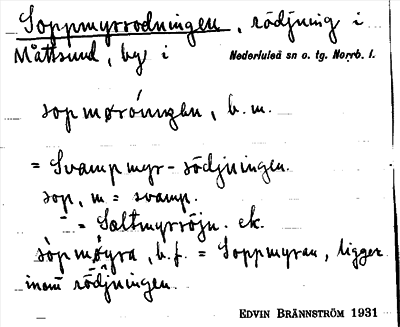 Soppmyrrödningen, rödjning i
Måttsund, by i Nederluleå sn o. tg. Norrb. l.
sopmørónıŋgən, b.m.
= Svampmyr-rödjningen.
sop, m = svamp.
" = Saltmyrröjn. ek.
sòpmø̀yra, b.f. = Soppmyran, ligger
inom rödjningen.
EDVIN BRÄNNSTRÖM 1931